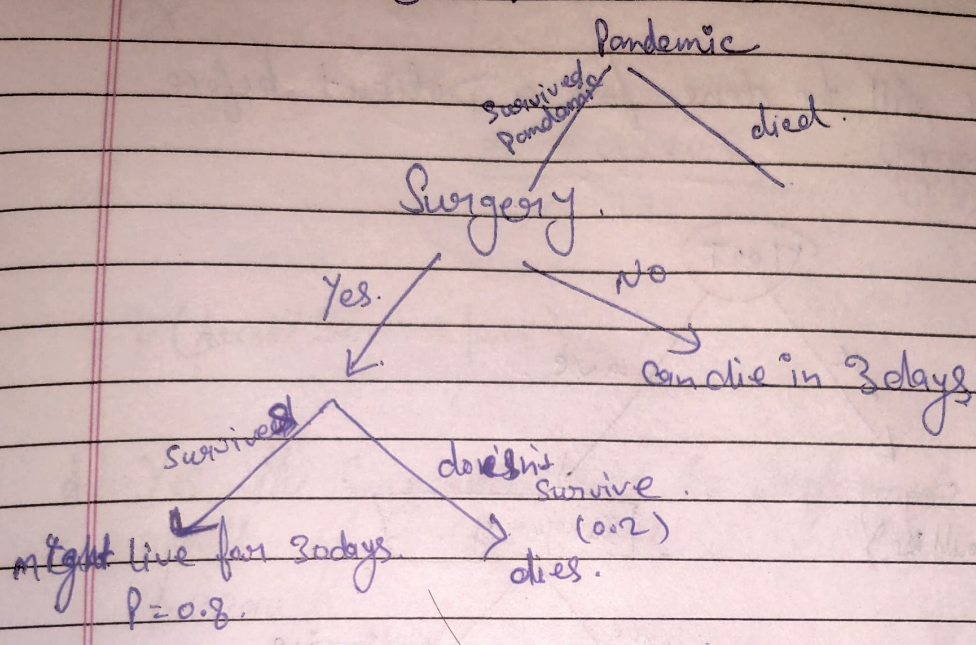 Pandemic
Survived
Pandamic
died.
Surgery.
Yes.
No
Can die in 3 days
Survives
doesn't
Survive.
(0.2)
might live for 30days.
dies.
P=0.8.